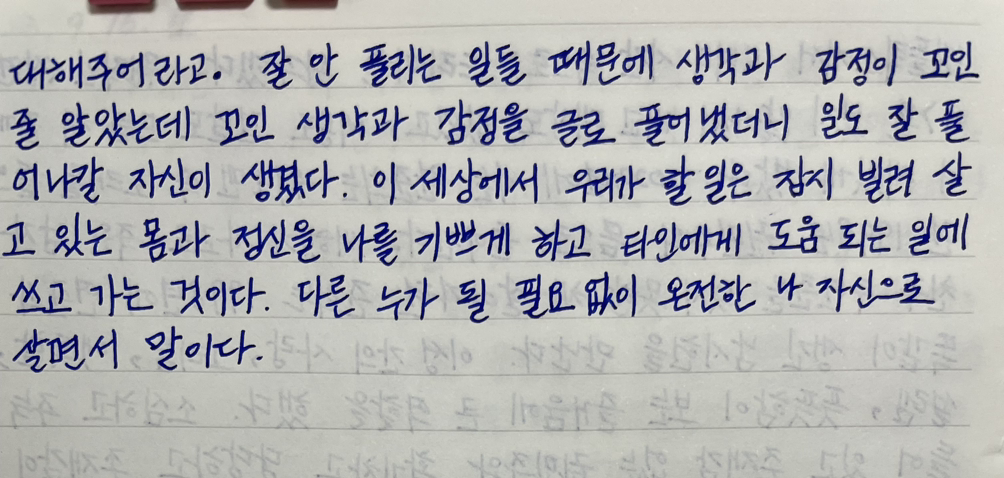 대해주어라고. 잘 안 풀리는 일들 때문에 생각과 감정이 꼬인
줄 알았는데 꼬인 생각과 감정을 글로 풀어냈더니 일도 잘 풀
어나갈 자신이 생겼다. 이 세상에서 우리가 할 일은 잠시 빌려 살
고 있는 몸과 정신을 나를 기쁘게 하고 타인에게 도움 되는 일에
쓰고 가는 것이다. 다른 누가 될 필요 없이 온전한 나 자신으로
살면서 말이다.